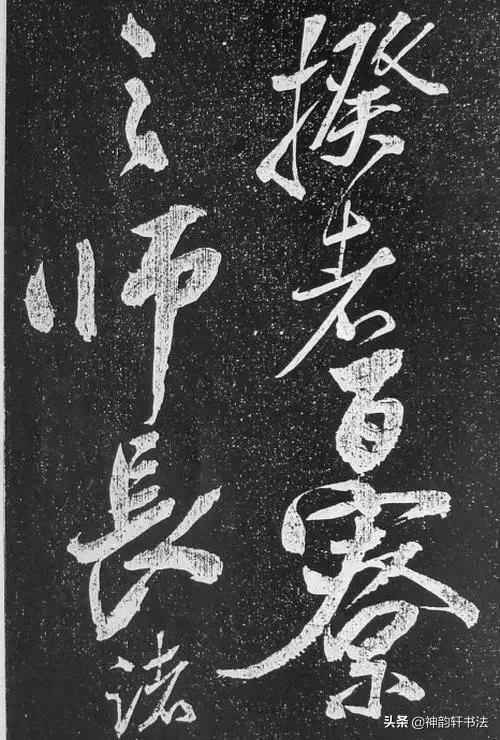 揆者百寮
之師長諸
头条 @神韵轩书法